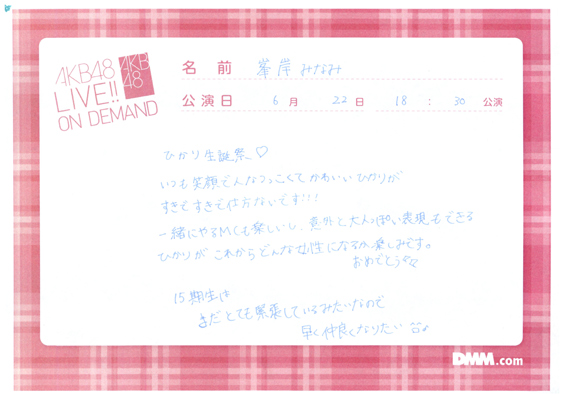 AKB48
LIVE!!
ON DEMAND
AKB
48
名 前 峯岸 みなみ
公演日 6 月 22 日 18 : 30 公演
ひかり生誕祭♡
いつも笑顔で人なつっこくてかわいいひかりが
すきですきで仕方ないです!!!
一緒にやるMCも楽しいし、意外と大人っぽい表現もできる
ひかりがこれからどんな女性になるか楽しみです。
おめでとう
15期生は
まだとても緊張しているみたいなので
早く仲良くなりたい
DMM.com